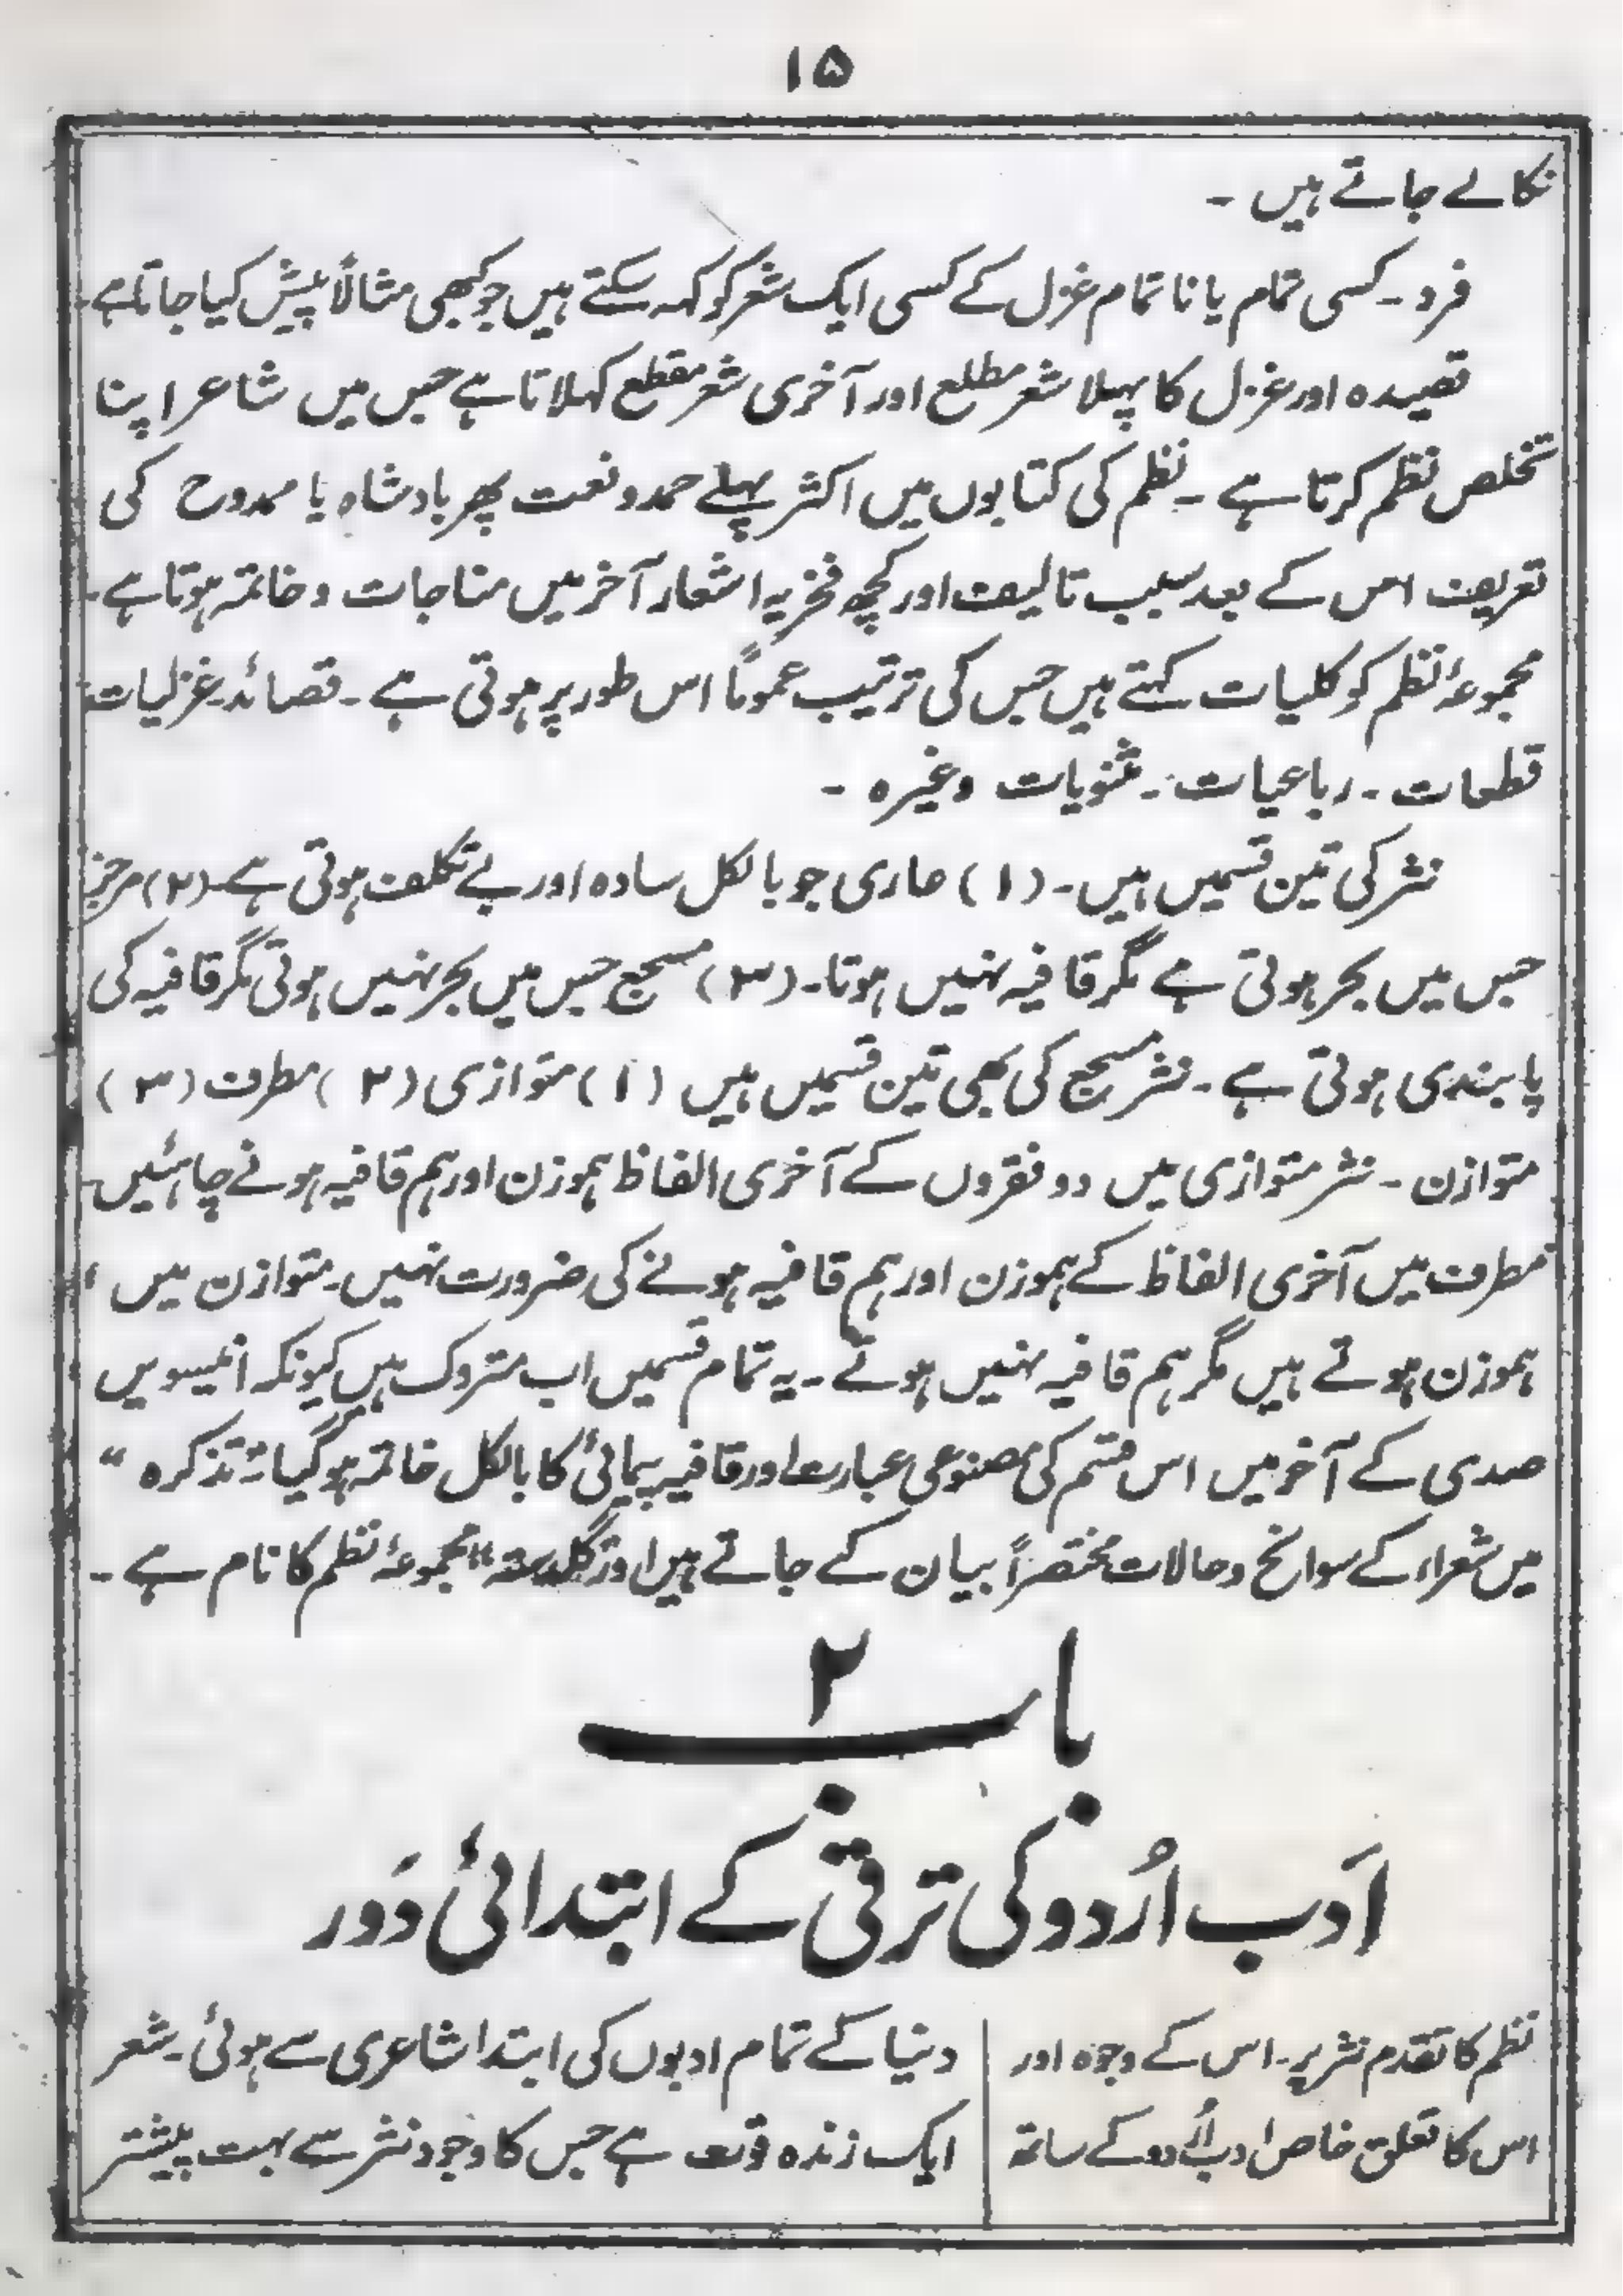 ۱۵
نکالے جاتے ہیں ۔
فرد ۔ کسی تمام یا نا تمام غزل کے کسی ایک شعر کو کہہ سکتے ہیں جو کبھی مثالاً پیش کیا جاتا ہے ۔
قصیدہ اور غزل کا پہلا شعر مطلع اور آخری شعر مقطع کہلاتا ہے جس میں شاعر اپنا
تخلص نظم کرتا ہے ۔ نظم کی کتابوں میں اکثر پہلے حمد و نعت پھر بادشاہ یا ممدوح کی
تعریف اس کے بعد سبب تالیف اور کچھ فخریہ اشعار آخر میں مناجات و خاتمہ ہوتا ہے ۔
مجموعۂ نظم کو کلیات کہتے ہیں جس کی ترتیب عموماً اس طور پر ہوتی ہے ۔ قصائد ۔ غزلیات ۔
قطعات ۔ رباعیات ۔ مثنویات وغیرہ ۔
نثر کی تین قسمیں ہیں ۔ (۱) عاری جو بالکل سادہ اور بے تکلف ہوتی ہے ۔ (۲) مرجز
جس میں بحر ہوتی ہے مگر قافیہ نہیں ہوتا ۔ (۳) مسجع جس میں بحر نہیں ہوتی مگر قافیہ کی
پابندی ہوتی ہے ۔ نثر مسجع کی بھی تین قسمیں ہیں (۱) متوازی (۲) مطرف (۳)
متوازن ۔ نثر متوازی میں دو فقروں کے آخری الفاظ ہموزن اور ہم قافیہ ہونے چاہئیں ۔
مطرف میں آخری الفاظ کے ہموزن اور ہم قافیہ ہونے کی ضرورت نہیں ۔ متوازن میں
ہموزن ہوتے ہیں مگر ہم قافیہ نہیں ہوتے ۔ یہ تمام قسمیں اب متروک ہیں کیونکہ انیسویں
صدی کے آخر میں اس قسم کی مصنوعی عبارت اور قافیہ پیمائی کا بالکل خاتمہ ہو گیا ۔ "تذکرہ"
میں شعراء کے سوانح و حالات مختصراً بیان کے جاتے ہیں اور "گلدستہ" مجموعۂ نظم کا نام ہے ۔
باب ۲
اَدب اُردو کی ترقی کے ابتدائی دَور
نظم کا تقدم نثر پر ۔ اس کے وجوہ اور
اس کا تعلق خاص ادب اُردو کے ساتھ
دنیا کے تمام ادبوں کی ابتدا شاعری سے ہوئی ۔ شعر
ایک زندہ قوت ہے جس کا وجود نثر سے بہت پیشتر